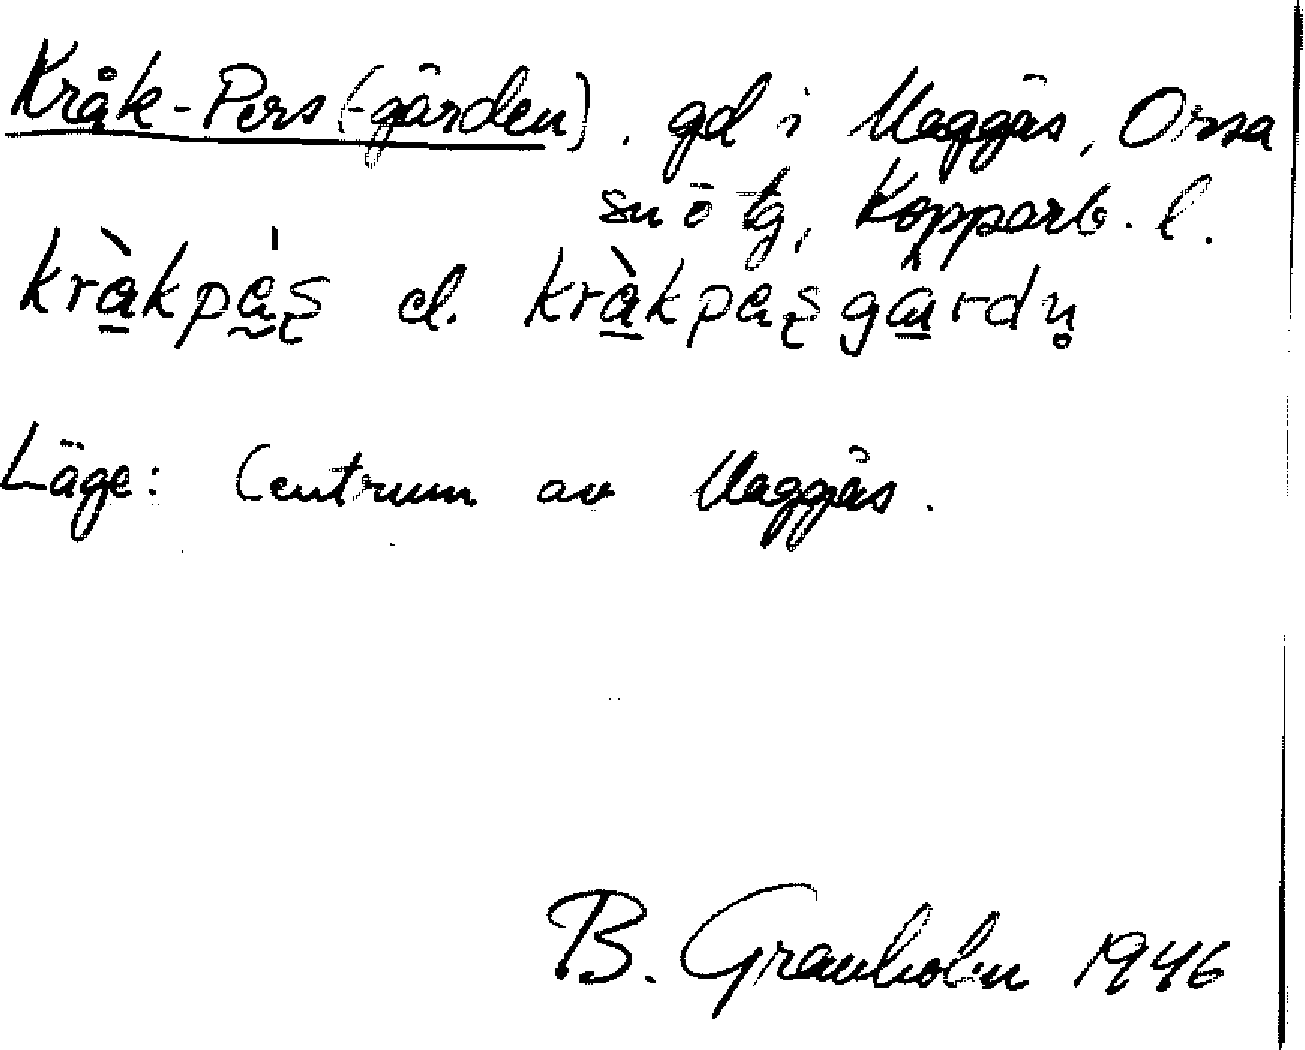 Kråk-Pers (-gården). gd i Maggås, Orsa
sn o tg, Kopparb. l.
kràkpás el. kràkpasgardn
Läge: Centrum av Maggås.
B. Granholm 1946